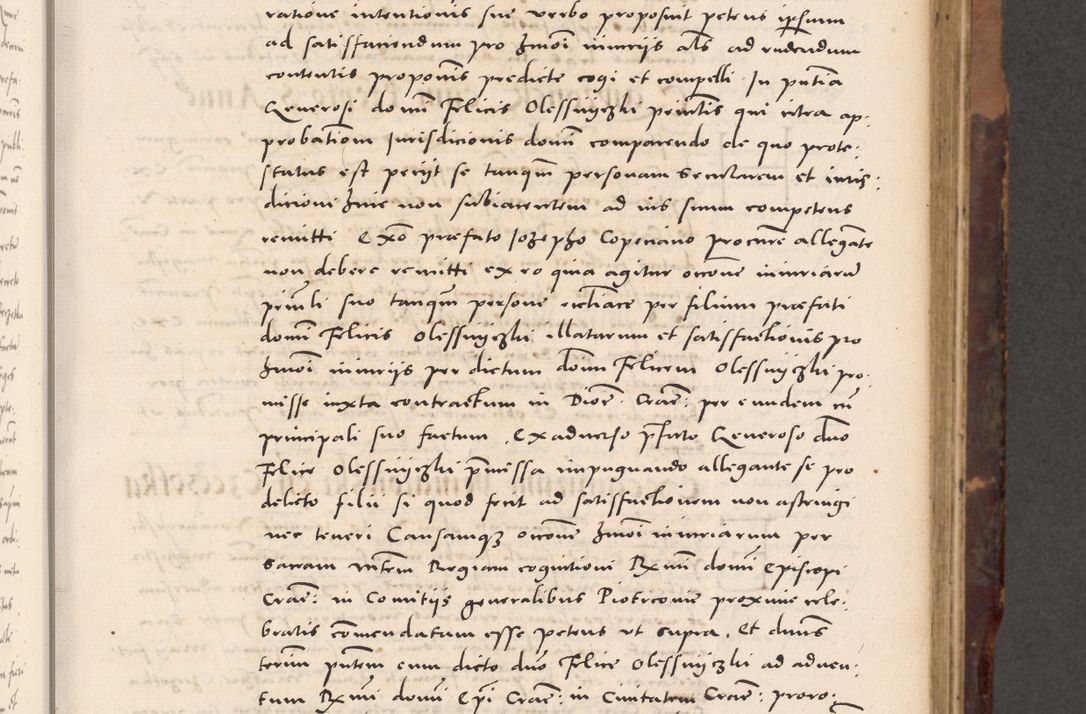 ratione intentionis sue verbo proposuit petens ipsum
ad satisfaciendum pro hmoi iniuriis als ad reddendum
contentis proponis predicte cogi et compelli In pntia
Generosi domi Felicis Olessniczki pentis qui citra ap-
probatiom Jurisdicionis domi comparendo de quo prote-
status est petiit se tanqm personam secularem et iuris-
dicioni hmoi non subiacentem ad ius suum competens
remitti Exo praefato Jozepho Copeciano procure allegate
non debere remitti ex eo quia agitur occone iniuriaru
prinli suo tanqm persone ecliace per filium praefati
domi Felicis Olessniczki illatarum et satisfactionis pro
hmoi iniuriis per dictum dom Felicem Olessniczki pro-
misse iuxta contractum in Dioe: Crae: per eundem cu
principali suo factum. Ex aduerso pfato Generoso duo
Felice Olessniczki pmissa impugnando allegante se pro
delicto filii si quod fecit ad satisfactionem non astringi
nec teneri Causamqz occone hmoi iniuriarum per
sacram mtem Regiam cognitioni Rxmi domi Episcopi
Crae: in Comitijs generalibus Piotrcouie proxime cele-
bratis comendatam esse petens vt supra. Et dnus
terim pntem cum dicto duo Felice Olessniczki ad aduen-
tum Rxmi domi Epi Crae: in Ciuitatem Crae: proro-